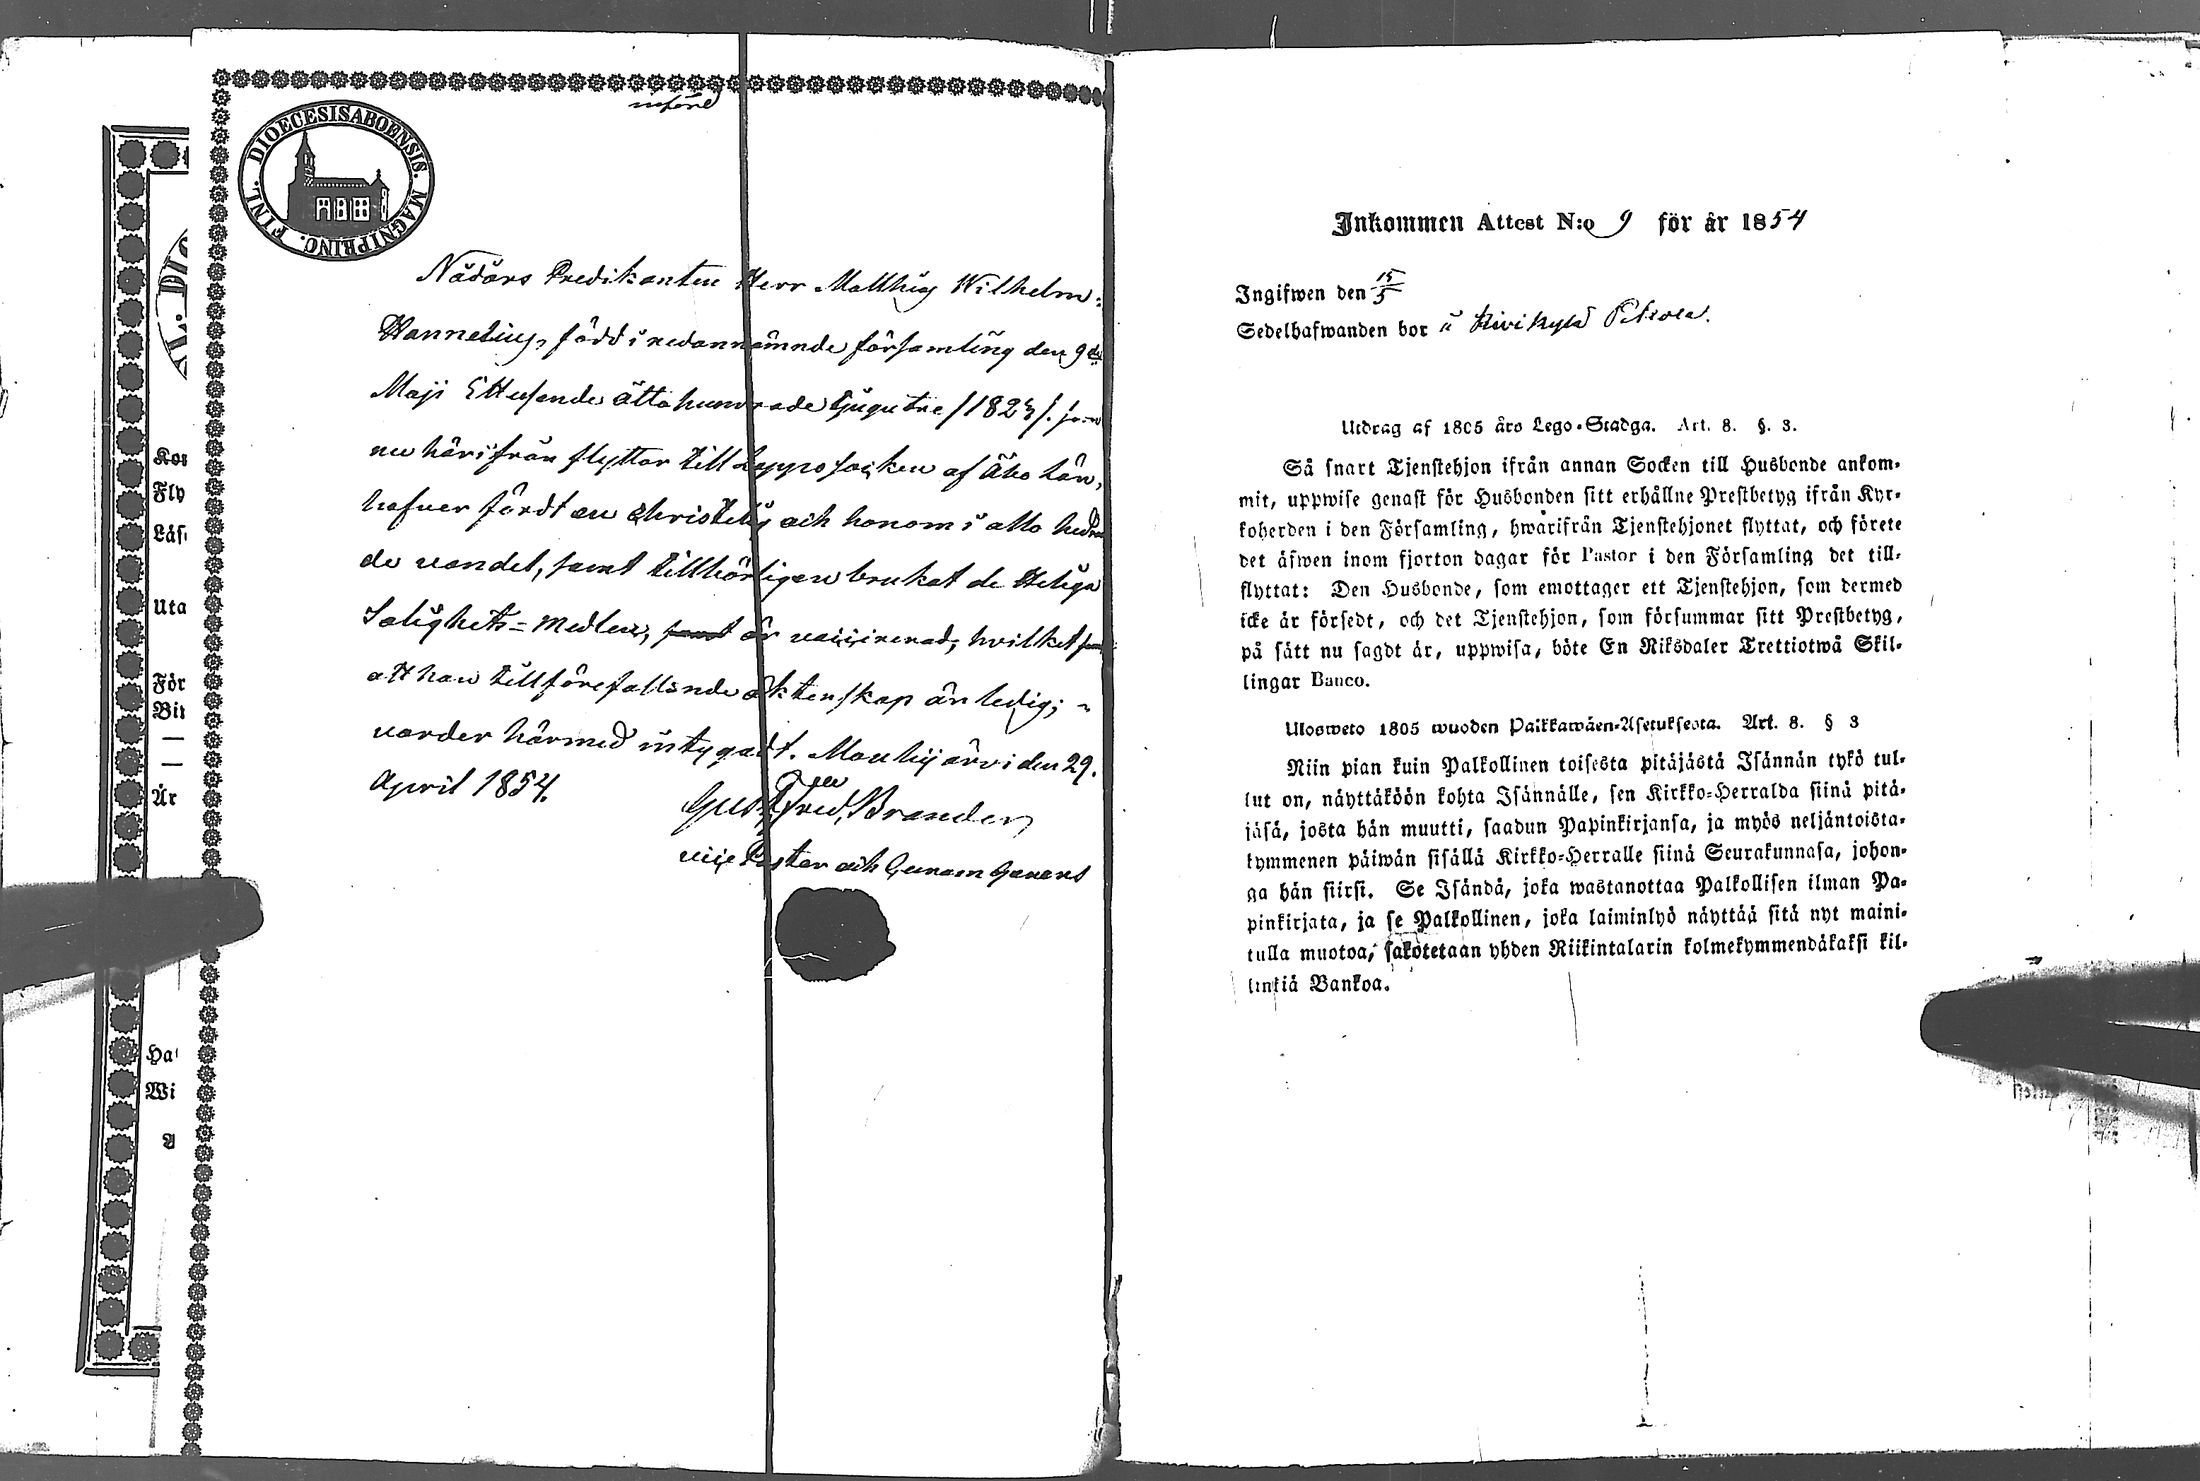 införd
DIOECESIS ABOENSIS. MAGNI PRINC. FINL.
Nådårs Predikanten Herr Matthias Wilhelm
Hannelius, född i nedannämnde församling den 9de
Maji Ettusende åttahundrade tjugutre /1823/. som
nu härifrån flyttar till Loppo socken af Åbo län,
hafver fördt en christelig och honom i allo hedran
de vandel, samt tillbörligen brukat de Heliga
Salighets=medlen, är vaccinerad, hvilket samt
att han till förefallande äktenskap är ledig;
varder härmed intygadt. Mouhijärvi den 29.
April 1854.
Gust. Fred. Brander
vice Pastor och
Kor
Fly
Läs
Uta
För
Bi
År
Ha
Wi
Inkommen Attest N:o 9 för år 1854
Ingifwen den 15/5
Sedelhafwanden bor i Kivikylä
Utdrag af 1805 års Lego-Stadga. Art. 8. §. 3.
Så snart Tjenstehjon ifrån annan Socken till Husbonde ankom-
mit, uppwise genast för Husbonden sitt erhållne Prestbetyg ifrån Kyr-
koherden i den Församling, hwarifrån Tjenstehjonet flyttat, och förete
det äfwen inom fjorton dagar för Pastor i den Församling det till-
flyttat: Den Husbonde, som emottager ett Tjenstehjon, som dermed
icke är försedt, och det Tjenstehjon, som försummar sitt Prestbetyg,
på sätt nu sagdt är, uppwisa, böte En Riksdaler Trettiotwå Skil-
lingar Banco.
Ulosweto 1805 wuoden Paikkawäen-Asetuksesta. Art. 8. § 3
Niin pian kuin Palkollinen toisesta pitäjästä Isännän tykö tul-
lut on, näyttäköön kohta Isännälle, sen Kirkko-Herralda siinä pitä-
jäsä, josta hän muutti, saadun Papinkirjansa, ja myös neljäntoista-
kymmenen päiwän sisällä Kirkko-Herralle siinä Seurakunnasa, johon-
ga hän siirsi. Se Isändä, joka wastanottaa Palkollisen ilman Pa-
pinkirjata, ja se Palkollinen, joka laiminlyö näyttää sitä nyt maini-
tulla muotoa, sakotetaan yhden Riikintalarin kolmekymmendäkaksi kil-
linkiä Bankoa.